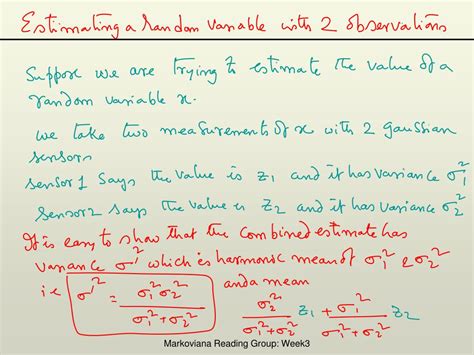 Estimating a random variable with 2 observations
Suppose we are trying to estimate the value of a
random variable x.
we take two measurements of x with 2 gaussian
sensors
sensor 1 says the value is z₁ and it has variance σ₁²
sensor 2 says the value is z₂ and it has variance σ₂²
It is easy to show that the combined estimate has
variance σ'² which is harmonic mean of σ₁² & σ₂²
i.e σ'² = σ₁²σ₂² / σ₁²+σ₂² and a mean σ₂² / σ₁²+σ₂² z₁ + σ₁² / σ₁²+σ₂² z₂
Markoviana Reading Group: Week3